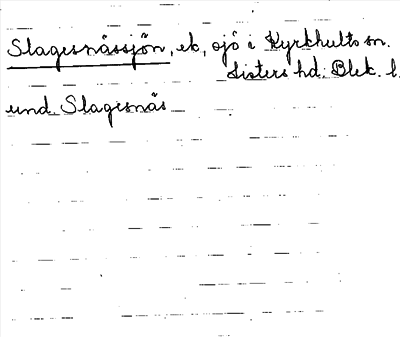 Slagesnässjön, ek, sjö i Kyrkhults sn.
Listers hd. Blek. l.
und. Slagesnäs